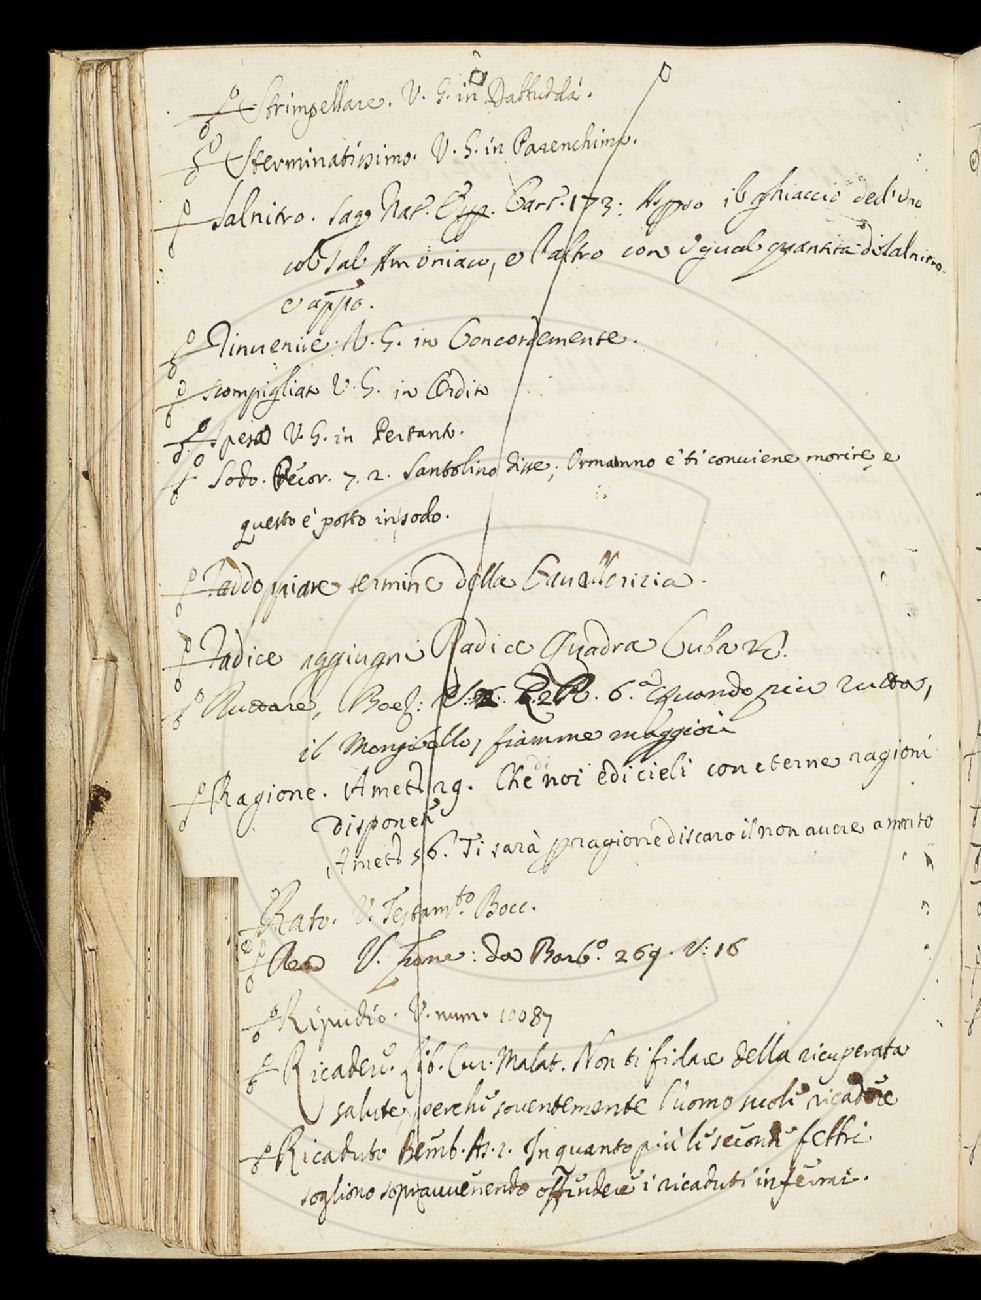 Strimpellare. V. S. in Dabbuddà.
Sterminatissimo. V. S. in Parenchimo.
Salnitro. Sag. Nat. Esp. Cart. 173: il ghiaccio dell'uno
col sal Armoniaco, e l'altro con ugual quantità di salnitro
e appo.
Rinvenire. V. S. in Concordemente.
Scompigliato V. S. in Ordito
V. S. in Pertanto.
Sodo. Pecor. 7. 2. Santolino disse, Ormanno e' ti conviene morire, e
questo è posto in sodo.
Raddoppiare termine della Cavallerizia.
Radice aggiugni Radice Quadra Cuba &c.
Ruttare, Boez: 6.ª Quando più rutta,
il Mongibello, fiamme maggiori
Ragione. Amet 29. Che di noi e di cieli con eterne ragioni
disponeti
Amet 56. Ti sarà p ragione discaro il non avere a marito
Rato. V. Testam.to Bocc.
Reo V. da Barb.o 269. V: 16
Ripudio. V. num. 10087
Ricader. Lib. Cur. Malat. Non ti fidare della ricuperata
salute, perchè soventemente l'uomo suole ricadere
Ricaduto Bemb. As. 2. In quanto più le seconde febbri
sogliono sopravvenendo offendere i ricaduti infermi.